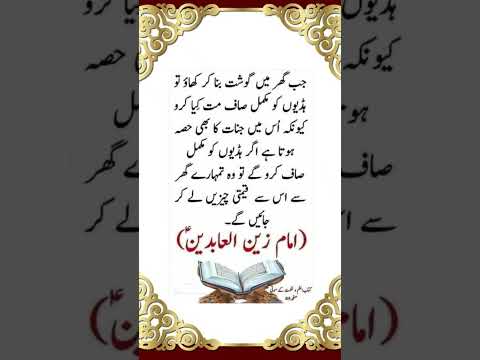 جب گھر میں گوشت بنا کر کھاؤ تو
ہڈیوں کو مکمل صاف مت کِیا کرو
کیونکہ اُس میں جنات کا بھی حصہ
ہوتا ہے اگر ہڈیوں کو مکمل
صاف کرو گے تو وہ تمہارے گھر
سے اس سے قیمتی چیزیں لے کر
جائیں گے۔
(امام زین العابدینؑ)